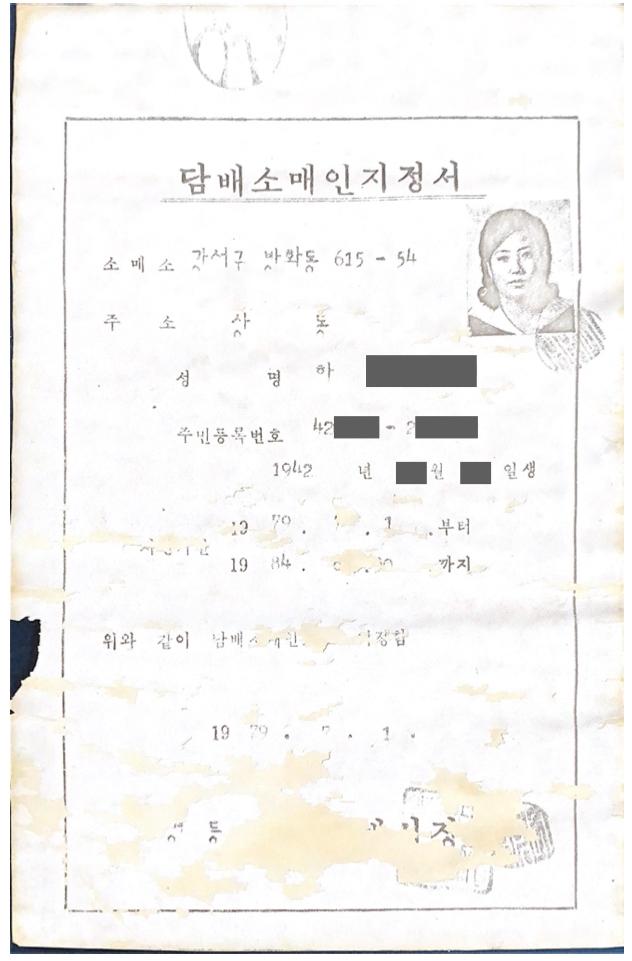 담배소매인지정서
소매소 강서구 방화동 615-54
주 소 상 동
성 명 하
주민등록번호 42 - 2
1942 년 월 일생
19 79. . 1 .부터
19 84. 까지
위와 같이 담배
1979. 7. 1.